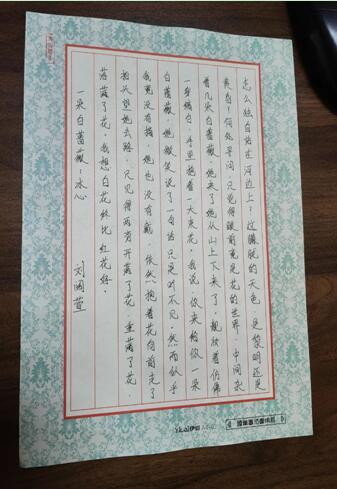 怎么独自站在河边上？这朦胧的天色，是黎明还是
黄昏？何处寻问，只觉得眼前竟是花的世界。中间杂
着几朵白蔷薇。她来了她从山上下来了。靓妆着仿佛
一身缟白，手里抱着一大束花。我说，你来给你一朵
白蔷薇，她微笑说了一句话只是听不见。然而似乎
我竟没有摘，她也没有戴 依然抱着花向前走了
抬头望她去路，只见得两旁开满了花，垂满了花，
落满了花。我想白花终比红花好。
一朵白蔷薇－冰心
刘国萱